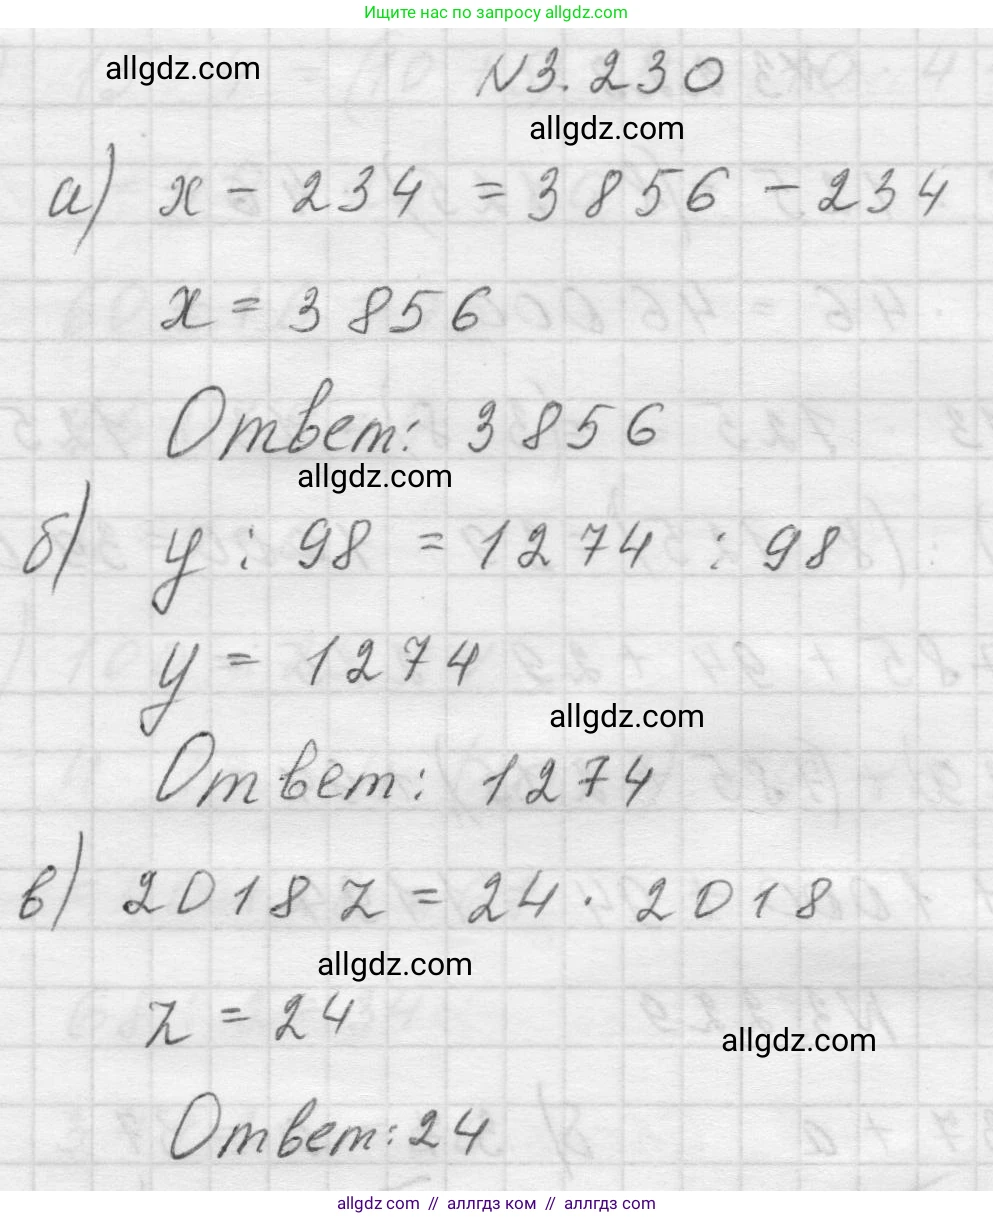 Ищите нас по запросу allgdz.com
allgdz.com
N3.230
allgdz.com
а) x - 234 = 3856 - 234
x = 3856
Ответ: 3856
allgdz.com
б) y : 98 = 1274 : 98
y = 1274
allgdz.com
Ответ: 1274
в) 2018 z = 24 · 2018
allgdz.com
z = 24
allgdz.com
Ответ: 24
allgdz com // аллгдз ком // аллгдз com